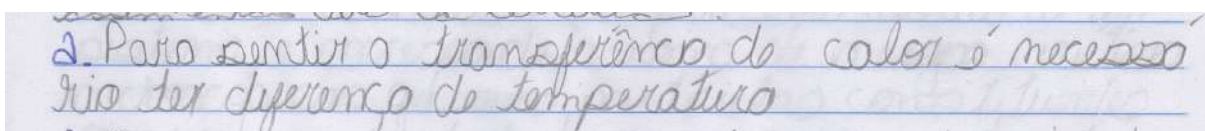 2. Para sentir a transferência de calor é necessá
rio ter diferença de temperatura